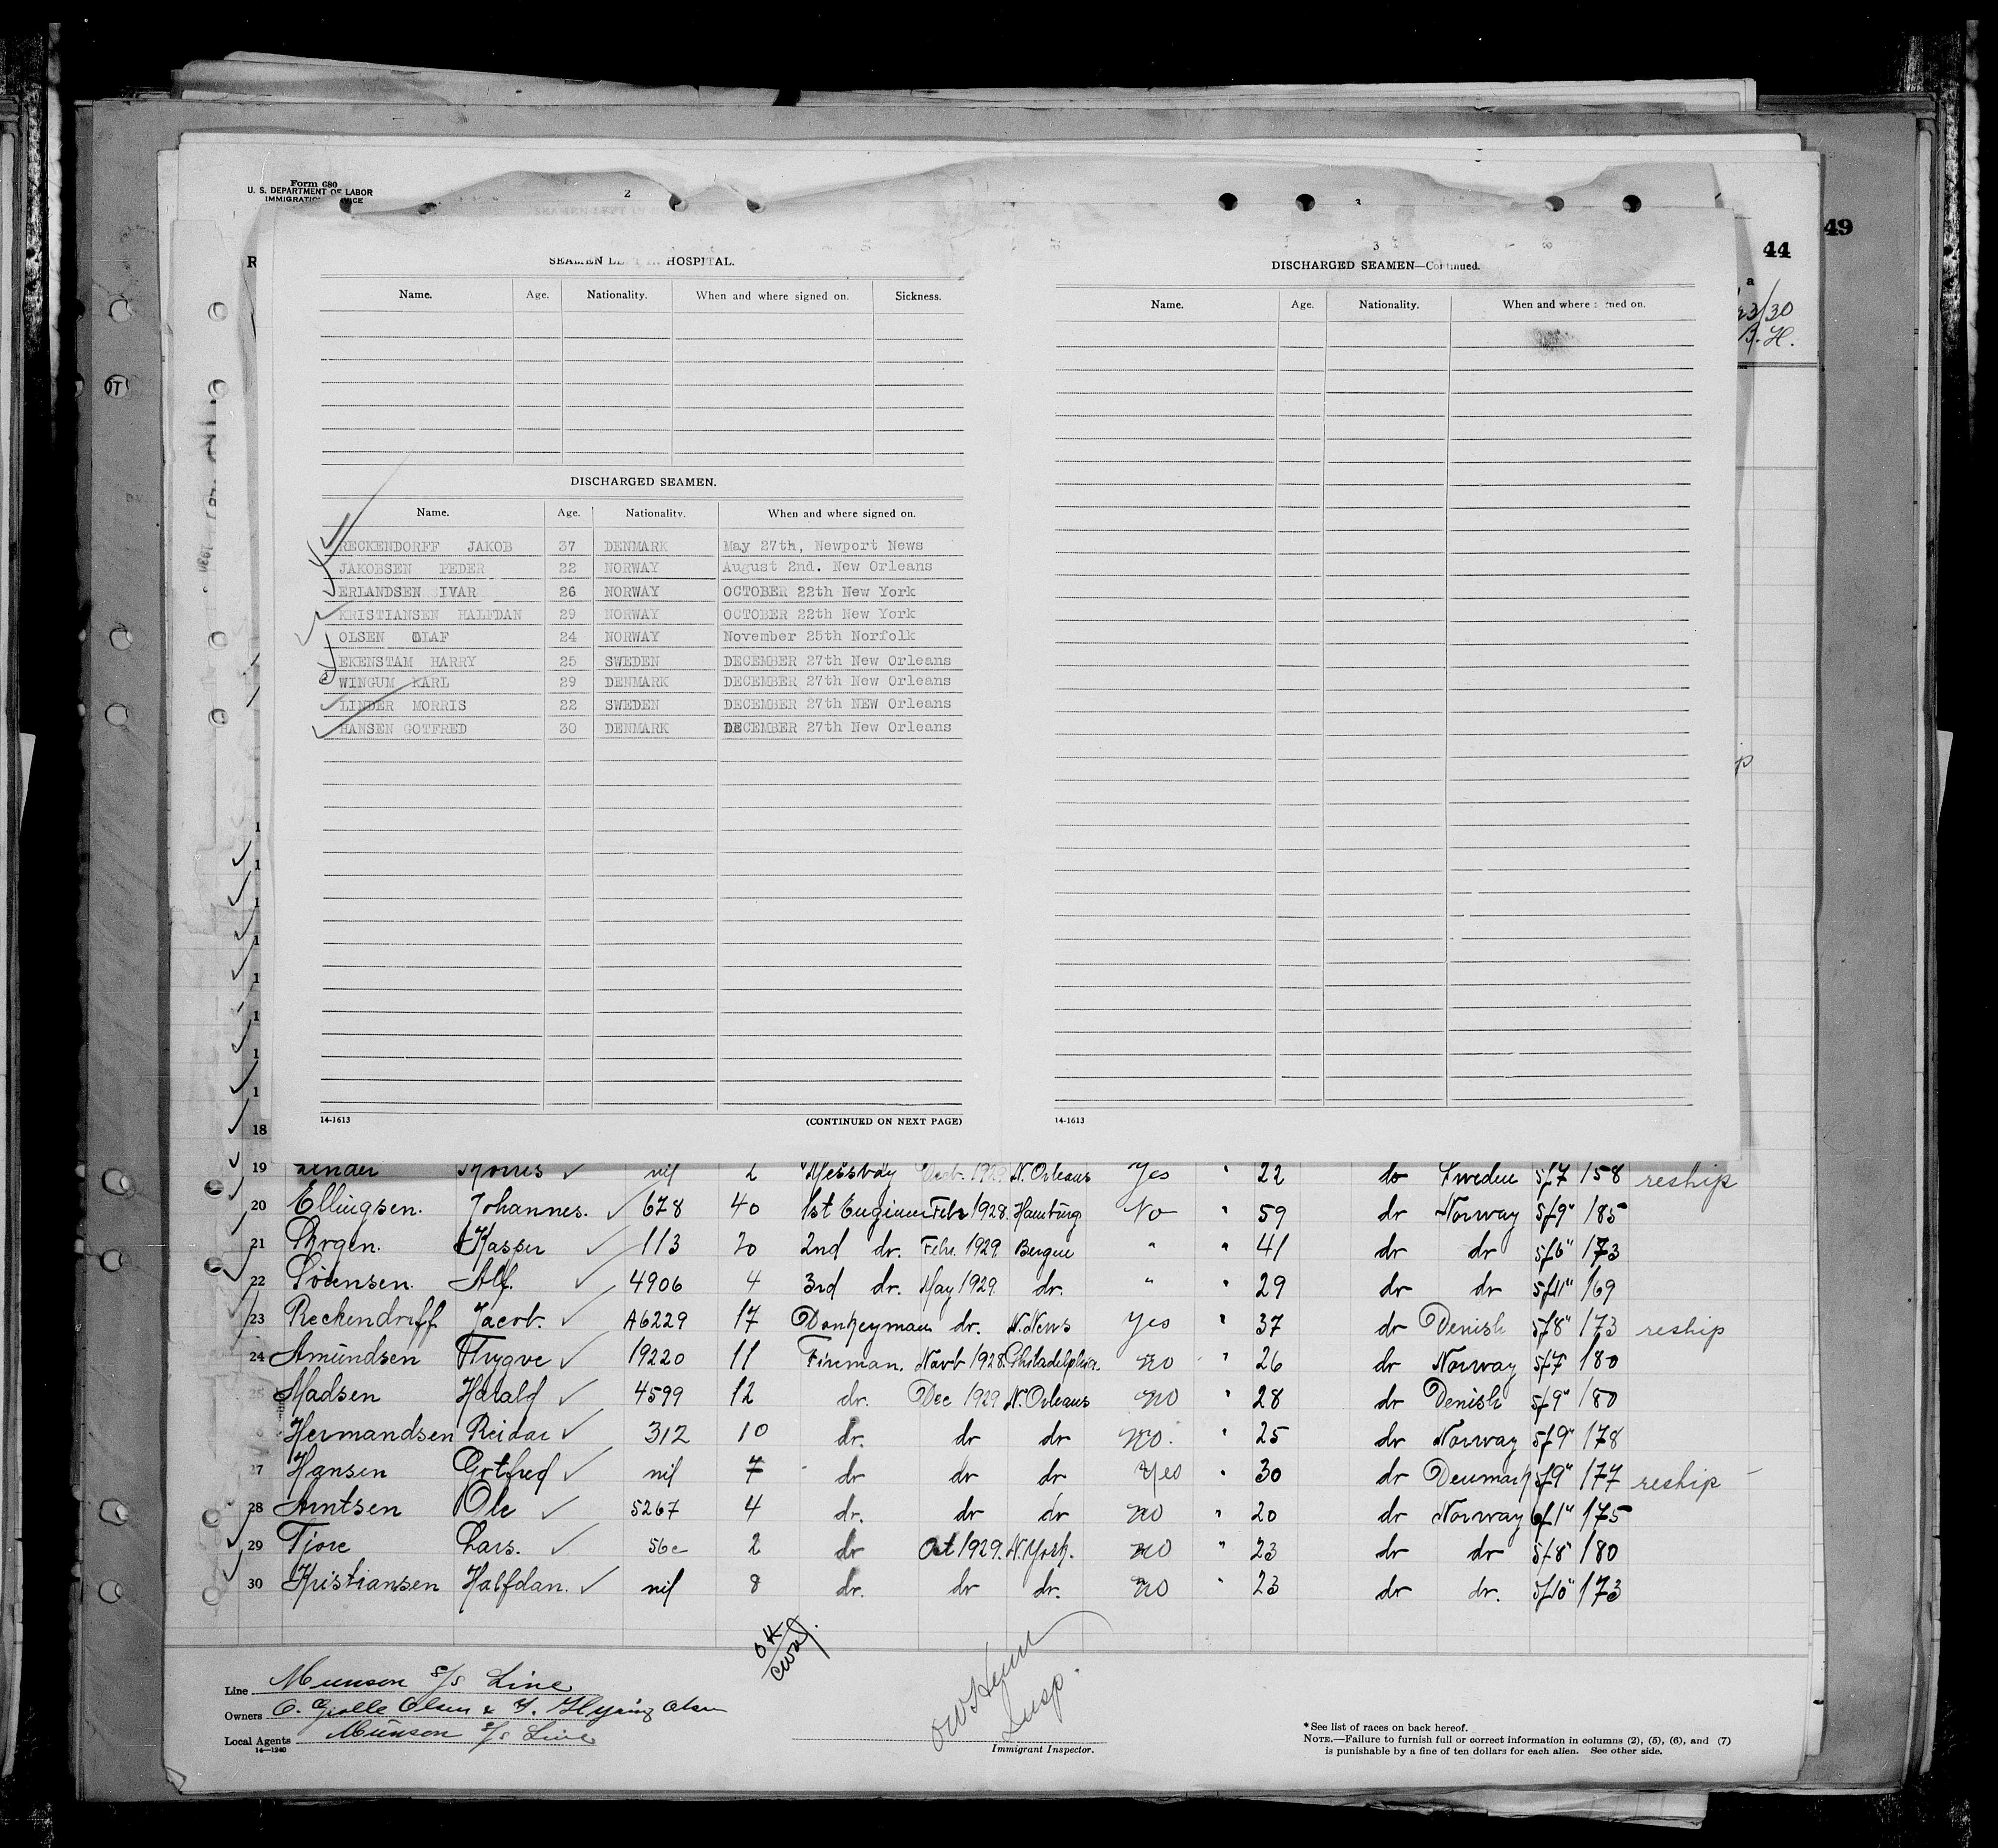 Form 680
U. S. DEPARTMENT OF LABOR
2
3
49
44
23/30
3
SEAMEN HOSPITAL.
Name. Age. Nationality. When and where signed on. Sickness.
DISCHARGED SEAMEN.
Name. Age. Nationality. When and where signed on.
RECKENDORFF JAKOB 37 DENMARK May 27th, Newport News
JAKOBSEN PEDER 22 NORWAY August 2nd. New Orleans
ERLANDSEN IVAR 26 NORWAY OCTOBER 22th New York
KRISTIANSEN HALFDAN 29 NORWAY OCTOBER 22th New York
OLSEN OLAF 24 NORWAY November 25th Norfolk
EKENSTAM HARRY 25 SWEDEN DECEMBER 27th New Orleans
WINGUM KARL 29 DENMARK DECEMBER 27th New Orleans
LINDER MORRIS 22 SWEDEN DECEMBER 27th NEW Orleans
HANSEN GOTFRED 30 DENMARK DECEMBER 27th New Orleans
14-1613 (CONTINUED ON NEXT PAGE)
DISCHARGED SEAMEN—Continued.
Name. Age. Nationality. When and where signed on.
14-1613
18
19 Linder Morris nil 2 Messboy Decb. 1929 N. Orleans Yes " 22 do Sweden 5f7 158 reship
20 Ellingsen. Johannes. 678 40 1st Engineer Febr 1928. Hamburg No " 59 do Norway 5f9" 185
21 Kasper 113 20 2nd do. Febr. 1929 Bergen " " 41 do do 5f6" 173
22 Sørensen. Alf. 4906 4 3rd do. May 1929. do. " " 29 do do 5f11" 169
23 Reckendorff Jacob. A6229 17 Donkeyman do. N. News Yes " 37 do Denish 5f8" 173 reship
24 Amundsen Trygve 19220 11 Fireman. Novb 1928. Philadelphia. no " 26 do Norway 5f7 180
25 Madsen Harald 4599 12 do. Dec 1929 N. Orleans no " 28 do Denish 5f9" 180
Hermandsen Reidar 312 10 do. do do no. " 25 do Norway 5f9" 178
27 Hansen Gotfred nil 7 do do do Yes " 30 do Denmark 5f9" 177 reship
28 Arntsen Ole 5267 4 do. do do no " 20 do Norway 6f1" 175
29 Tjore Lars. 2 do Oct 1929. N. York. no " 23 do do 5f8" 180
30 Kristiansen Halfdan. nil 8 do. do do. no " 23 do do. 5f10" 173
Line Munson S/S Line
Owners O. Grolle Olsen & Olsen
Local Agents Munson S/S Line
14—1240
OK
Insp.
Immigrant Inspector.
*See list of races on back hereof.
NOTE.—Failure to furnish full or correct information in columns (2), (5), (6), and (7)
is punishable by a fine of ten dollars for each alien. See other side.